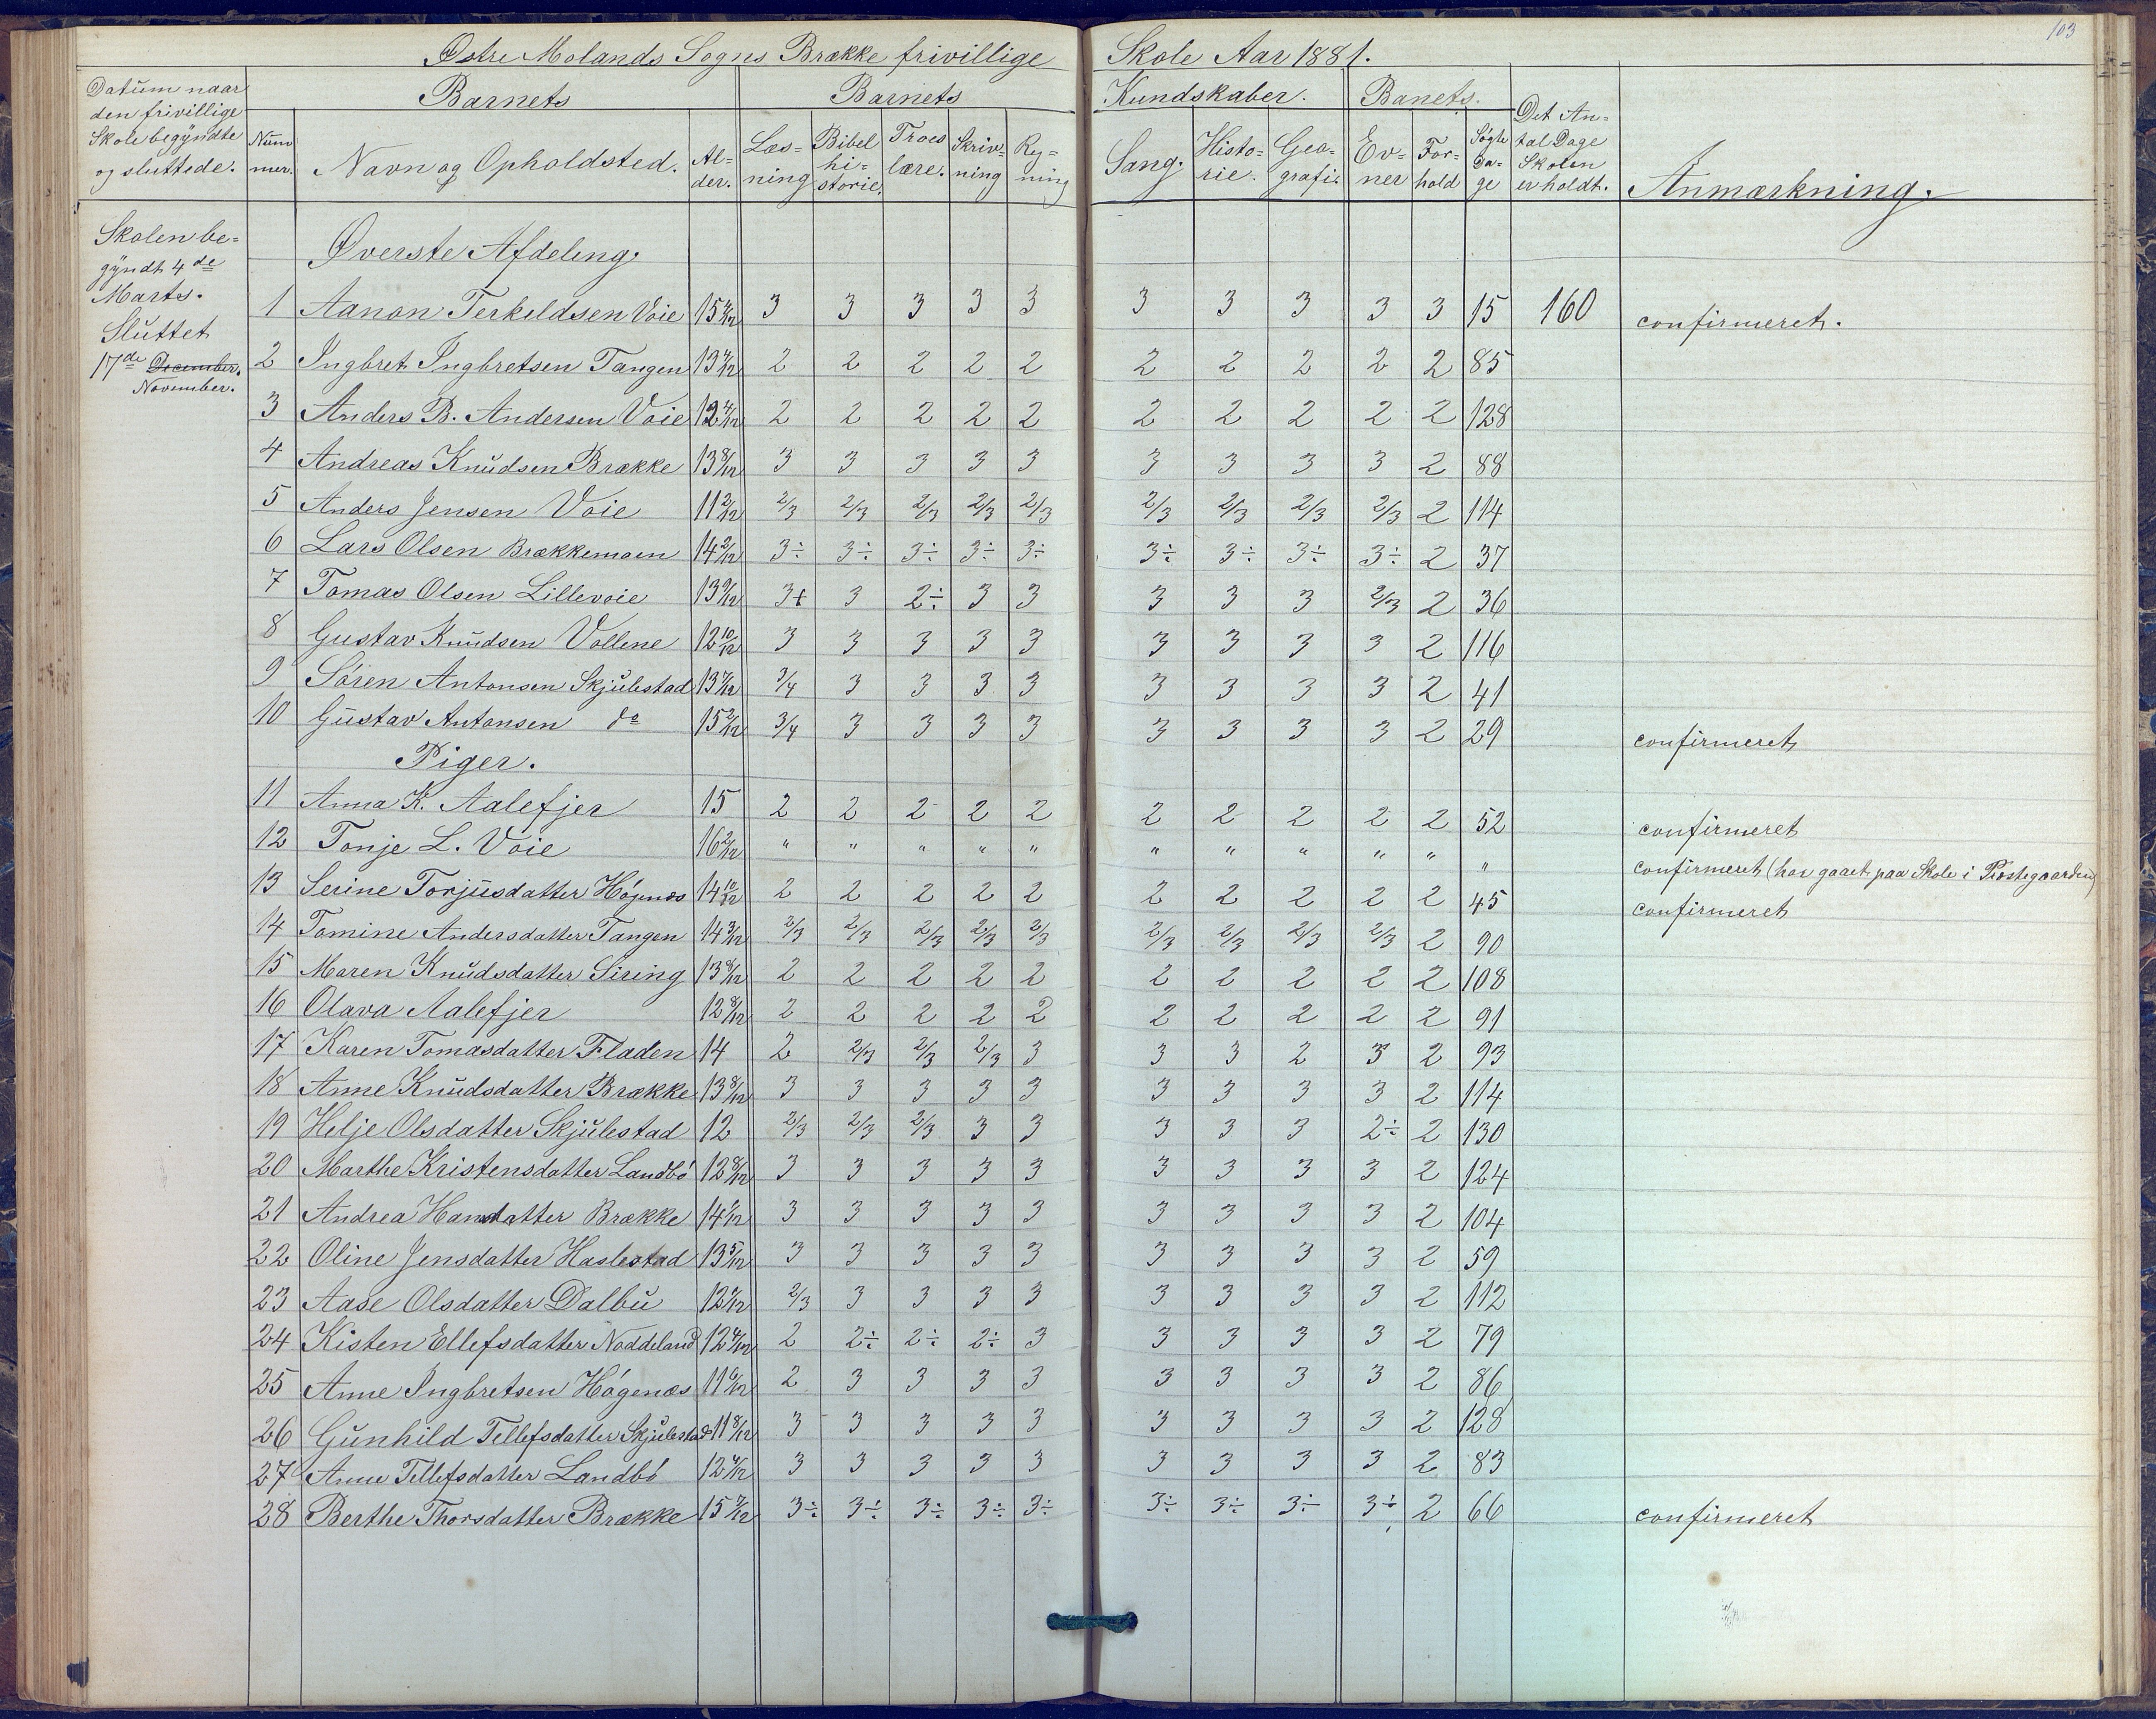 103
Østre Molands Sogns Brække frivillige Skole Aar 1881.
Datum naar den frivillige Skole begyndte og sluttede.
Barnets
Barnets Kundskaber.
Banets.
Det Antal Dage Skolen er holdt.
Anmærkning.
Nummer. Navn og Opholdsted. Alder. Læsning Bibelhistorie. Troeslære. Skrivning Regning Sang. Historie. Geografi. Evner Forhold Søgte Dage
Skolen be=
gyndt 4de
Marts.
Sluttet
17de December.
November.
Øverste Afdeling.
1 Aanon Terkeldsen Voie 15 3 3 3 3 3 3 3 3 3 3 15 160 confirmeret.
2 Ingbret Ingbretsen Tangen 13 2 2 2 2 2 2 2 2 2 2 85
3 Anders B. Andersen Voie 12 2 2 2 2 2 2 2 2 2 2 128
4 Andreas Knudsen Brække 13 8/12 3 3 3 3 3 3 3 3 3 2 88
5 Anders Jensen Voie 11 2/12 2/3 2/3 2/3 2/3 2/3 2/3 2/3 2/3 2/3 2 114
6 Lars Olsen Brækkemoen 14 2/12 3÷ 3÷ 3÷ 3÷ 3÷ 3÷ 3÷ 3÷ 3÷ 2 37
7 Tomas Olsen Lillevoie 13 9/12 3+ 3 2÷ 3 3 3 3 3 2/3 2 36
8 Gustav Knudsen Vollene 12 10/12 3 3 3 3 3 3 3 3 3 2 116
9 Søren Antonsen Skjulestad 13 7/12 3/4 3 3 3 3 3 3 3 3 2 41
10 Gustav Antonsen do 15 2/12 3/4 3 3 3 3 3 3 3 3 2 29 confirmeret
Piger.
11 Anna K. Aalefjer 15 2 2 2 2 2 2 2 2 2 2 52 confirmeret
12 Tonje L. Voie 16 2/12 " " " " " " " " " " " confirmeret (har gaaet paa Skole i Præstegaarden)
13 Serine Torjusdatter Høgenæs 14 10/12 2 2 2 2 2 2 2 2 2 2 45 confirmeret
14 Tomine Andersdatter Tangen 14 3/12 2/3 2/3 2/3 2/3 2/3 2/3 2/3 2/3 2/3 2 90
15 Maren Knudsdatter Siring 13 8/12 2 2 2 2 2 2 2 2 2 2 108
16 Olava Aalefjer 12 8/12 2 2 2 2 2 2 2 2 2 2 91
17 Karen Tomasdatter Fladen 14 2 2/3 2/3 2/3 3 3 3 2 3 2 93
18 Anne Knudsdatter Brække 13 8/12 3 3 3 3 3 3 3 3 3 2 114
19 Helje Olsdatter Skjulestad 12 2/3 2/3 2/3 3 3 3 3 3 2÷ 2 130
20 Marthe Kristensdatter Landbø 12 8/12 3 3 3 3 3 3 3 3 3 2 124
21 Andrea Hansdatter Brække 14 1/12 3 3 3 3 3 3 3 3 3 2 104
22 Oline Jensdatter Haslestad 13 5/12 3 3 3 3 3 3 3 3 3 2 59
23 Aase Olsdatter Dalbu 12 2/3 3 3 3 3 3 3 3 3 2 112
24 Kisten Ellefsdatter Noddeland 12 4/12 2 2÷ 2÷ 2÷ 3 3 3 3 3 2 79
25 Anne Ingbretsen Høgenæs 11 6/12 2 3 3 3 3 3 3 3 3 2 86
26 Gunhild Tellefsdatter Skjulestad 11 8/12 3 3 3 3 3 3 3 3 3 2 128
27 Anne Tellefsdatter Landbø 12 3 3 3 3 3 3 3 3 3 2 83
28 Berthe Thorsdatter Brække 15 7/12 3÷ 3÷ 3÷ 3÷ 3÷ 3÷ 3÷ 3÷ 3÷ 2 66 confirmeret